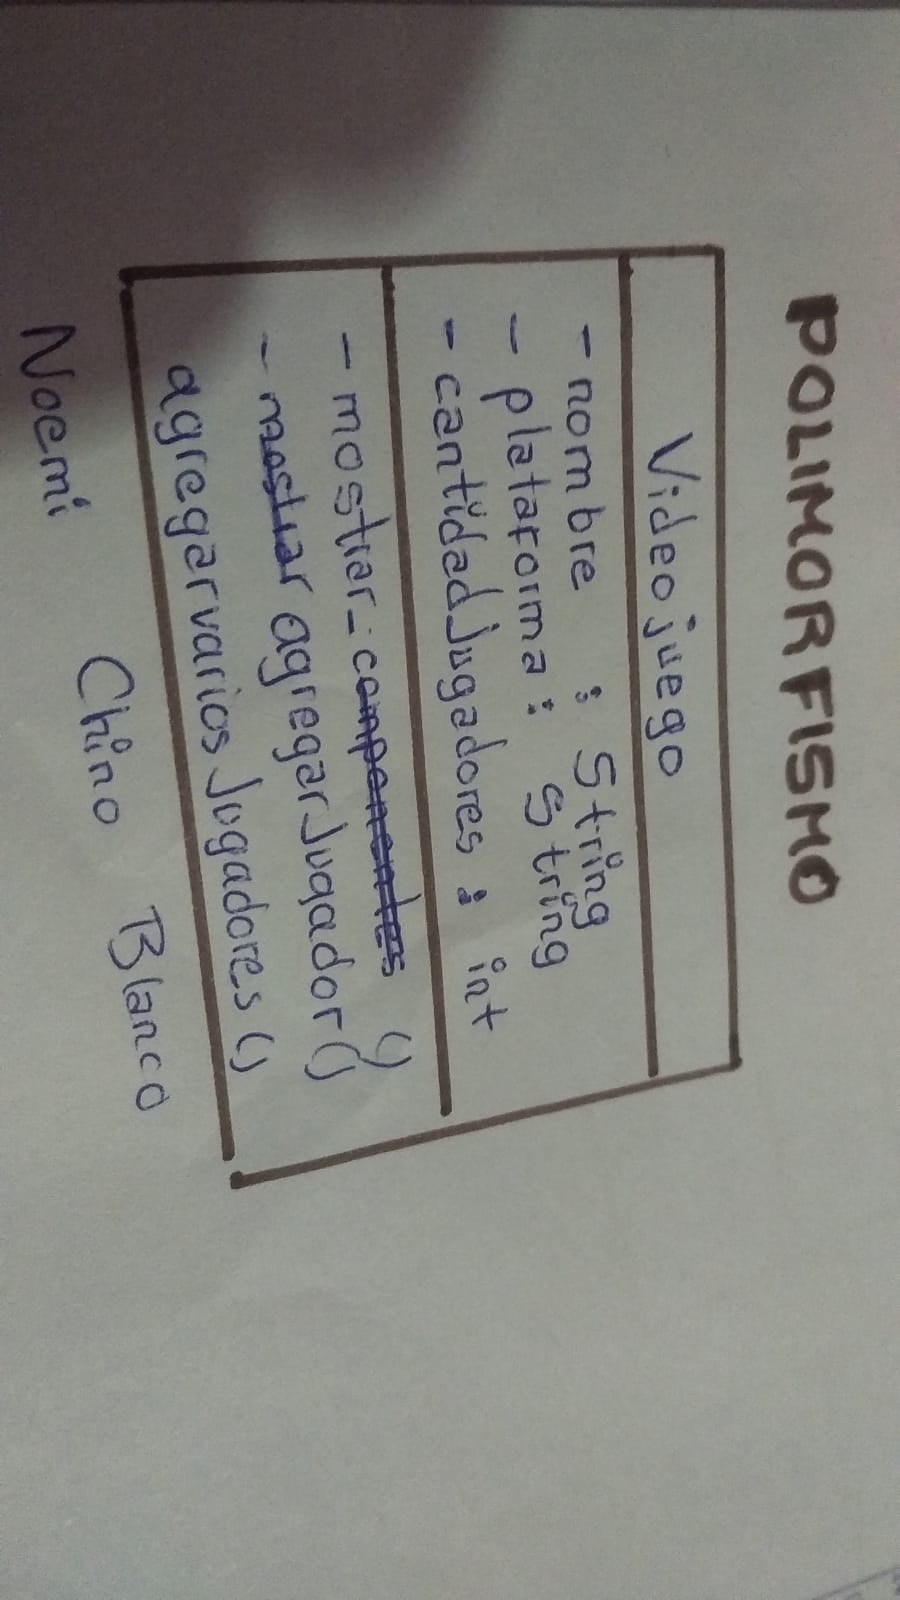 POLIMORFISMO
Videojuego
- nombre : String
- plataforma : String
- cantidadJugadores : int
- mostrar_: componentes ()
- mostrar agregarJugador()
agregarvariosJugadores()
Noemi Chino Blanco